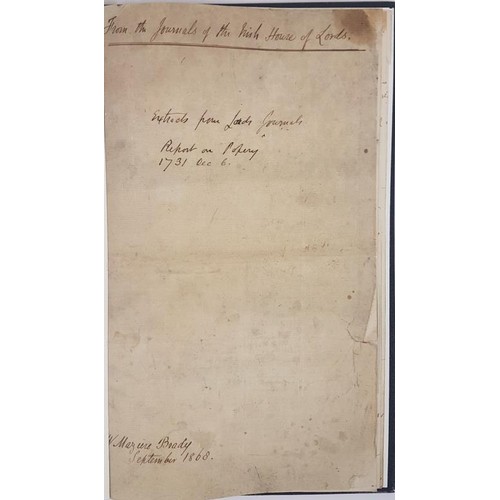 From the Journals of the Irish House of Lords.
Extracts from Lords Journals
Report on Popery
1731 Dec 6.
W Maziere Brady
September 1868.